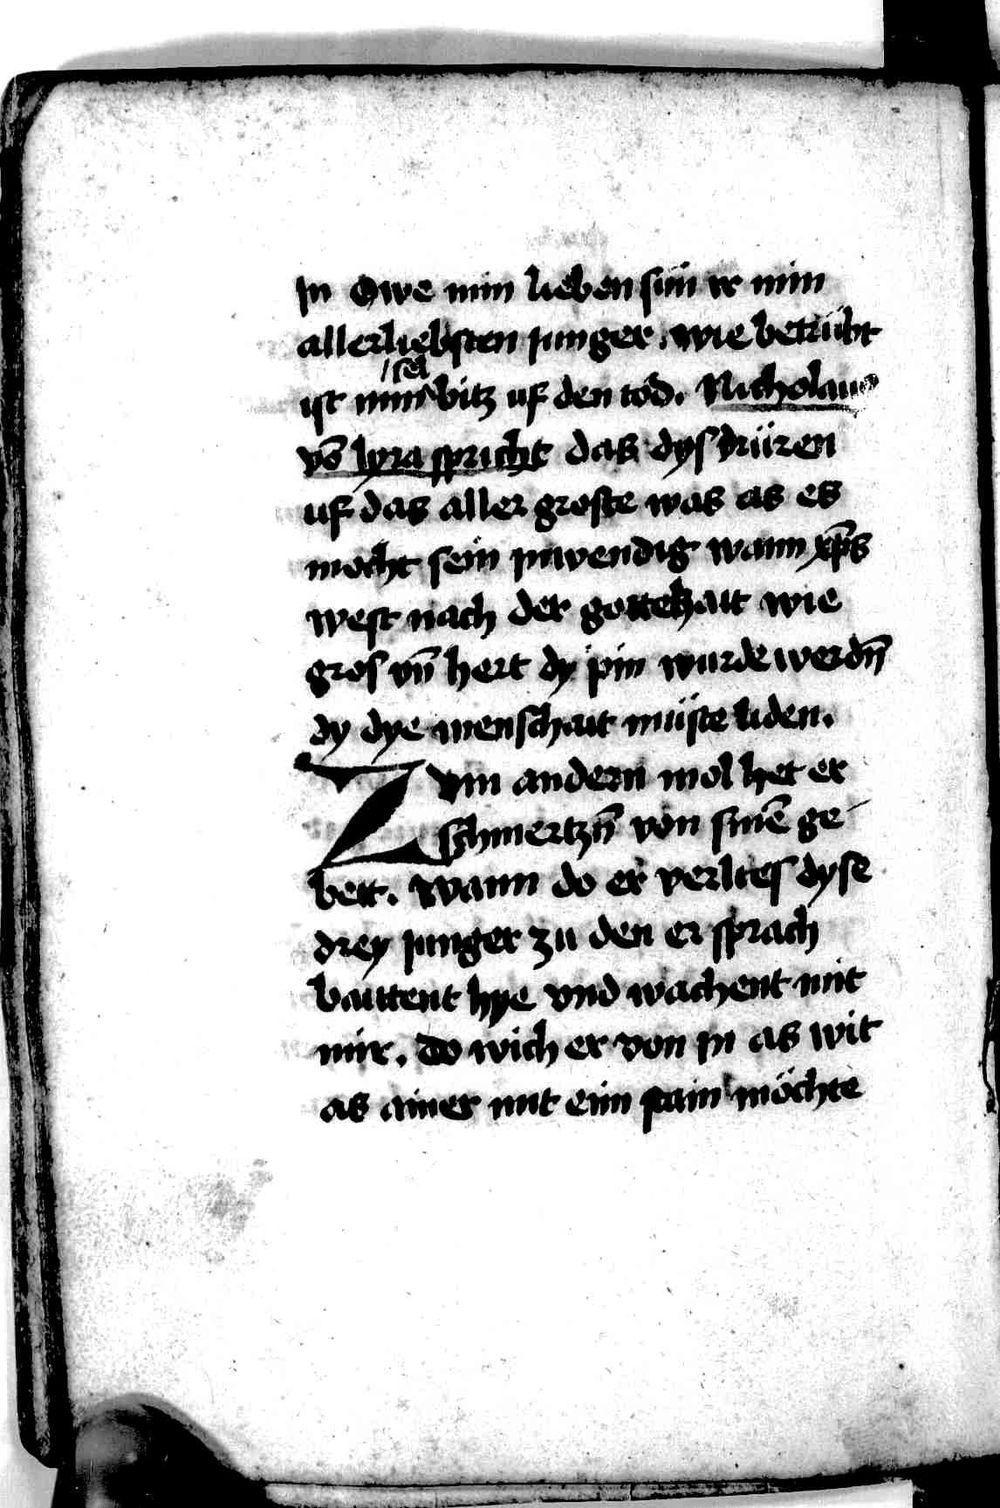 Jn Owe min lieben sün ir min
allerliebsten junger. wie betrübt
ist min sel bitz uf den tod. Nicholaus
vō lyra spricht das dys drüren
uf das aller groste was as es
mocht sein jnwendig wann xp̄s
west nach der gottehait wie
gros vn̄ hert dy pin wurde werdn̄
dy dye menschait müste liden.
Zvm andern mol het er
schmertzn̄ von sinē ge
bett. Wann do er verlies dyse
drey junger zu den er sprach
baittent hye vnd wachent mit
mir. Do wich er von jn as wit
as ainer mit eim stain möchte